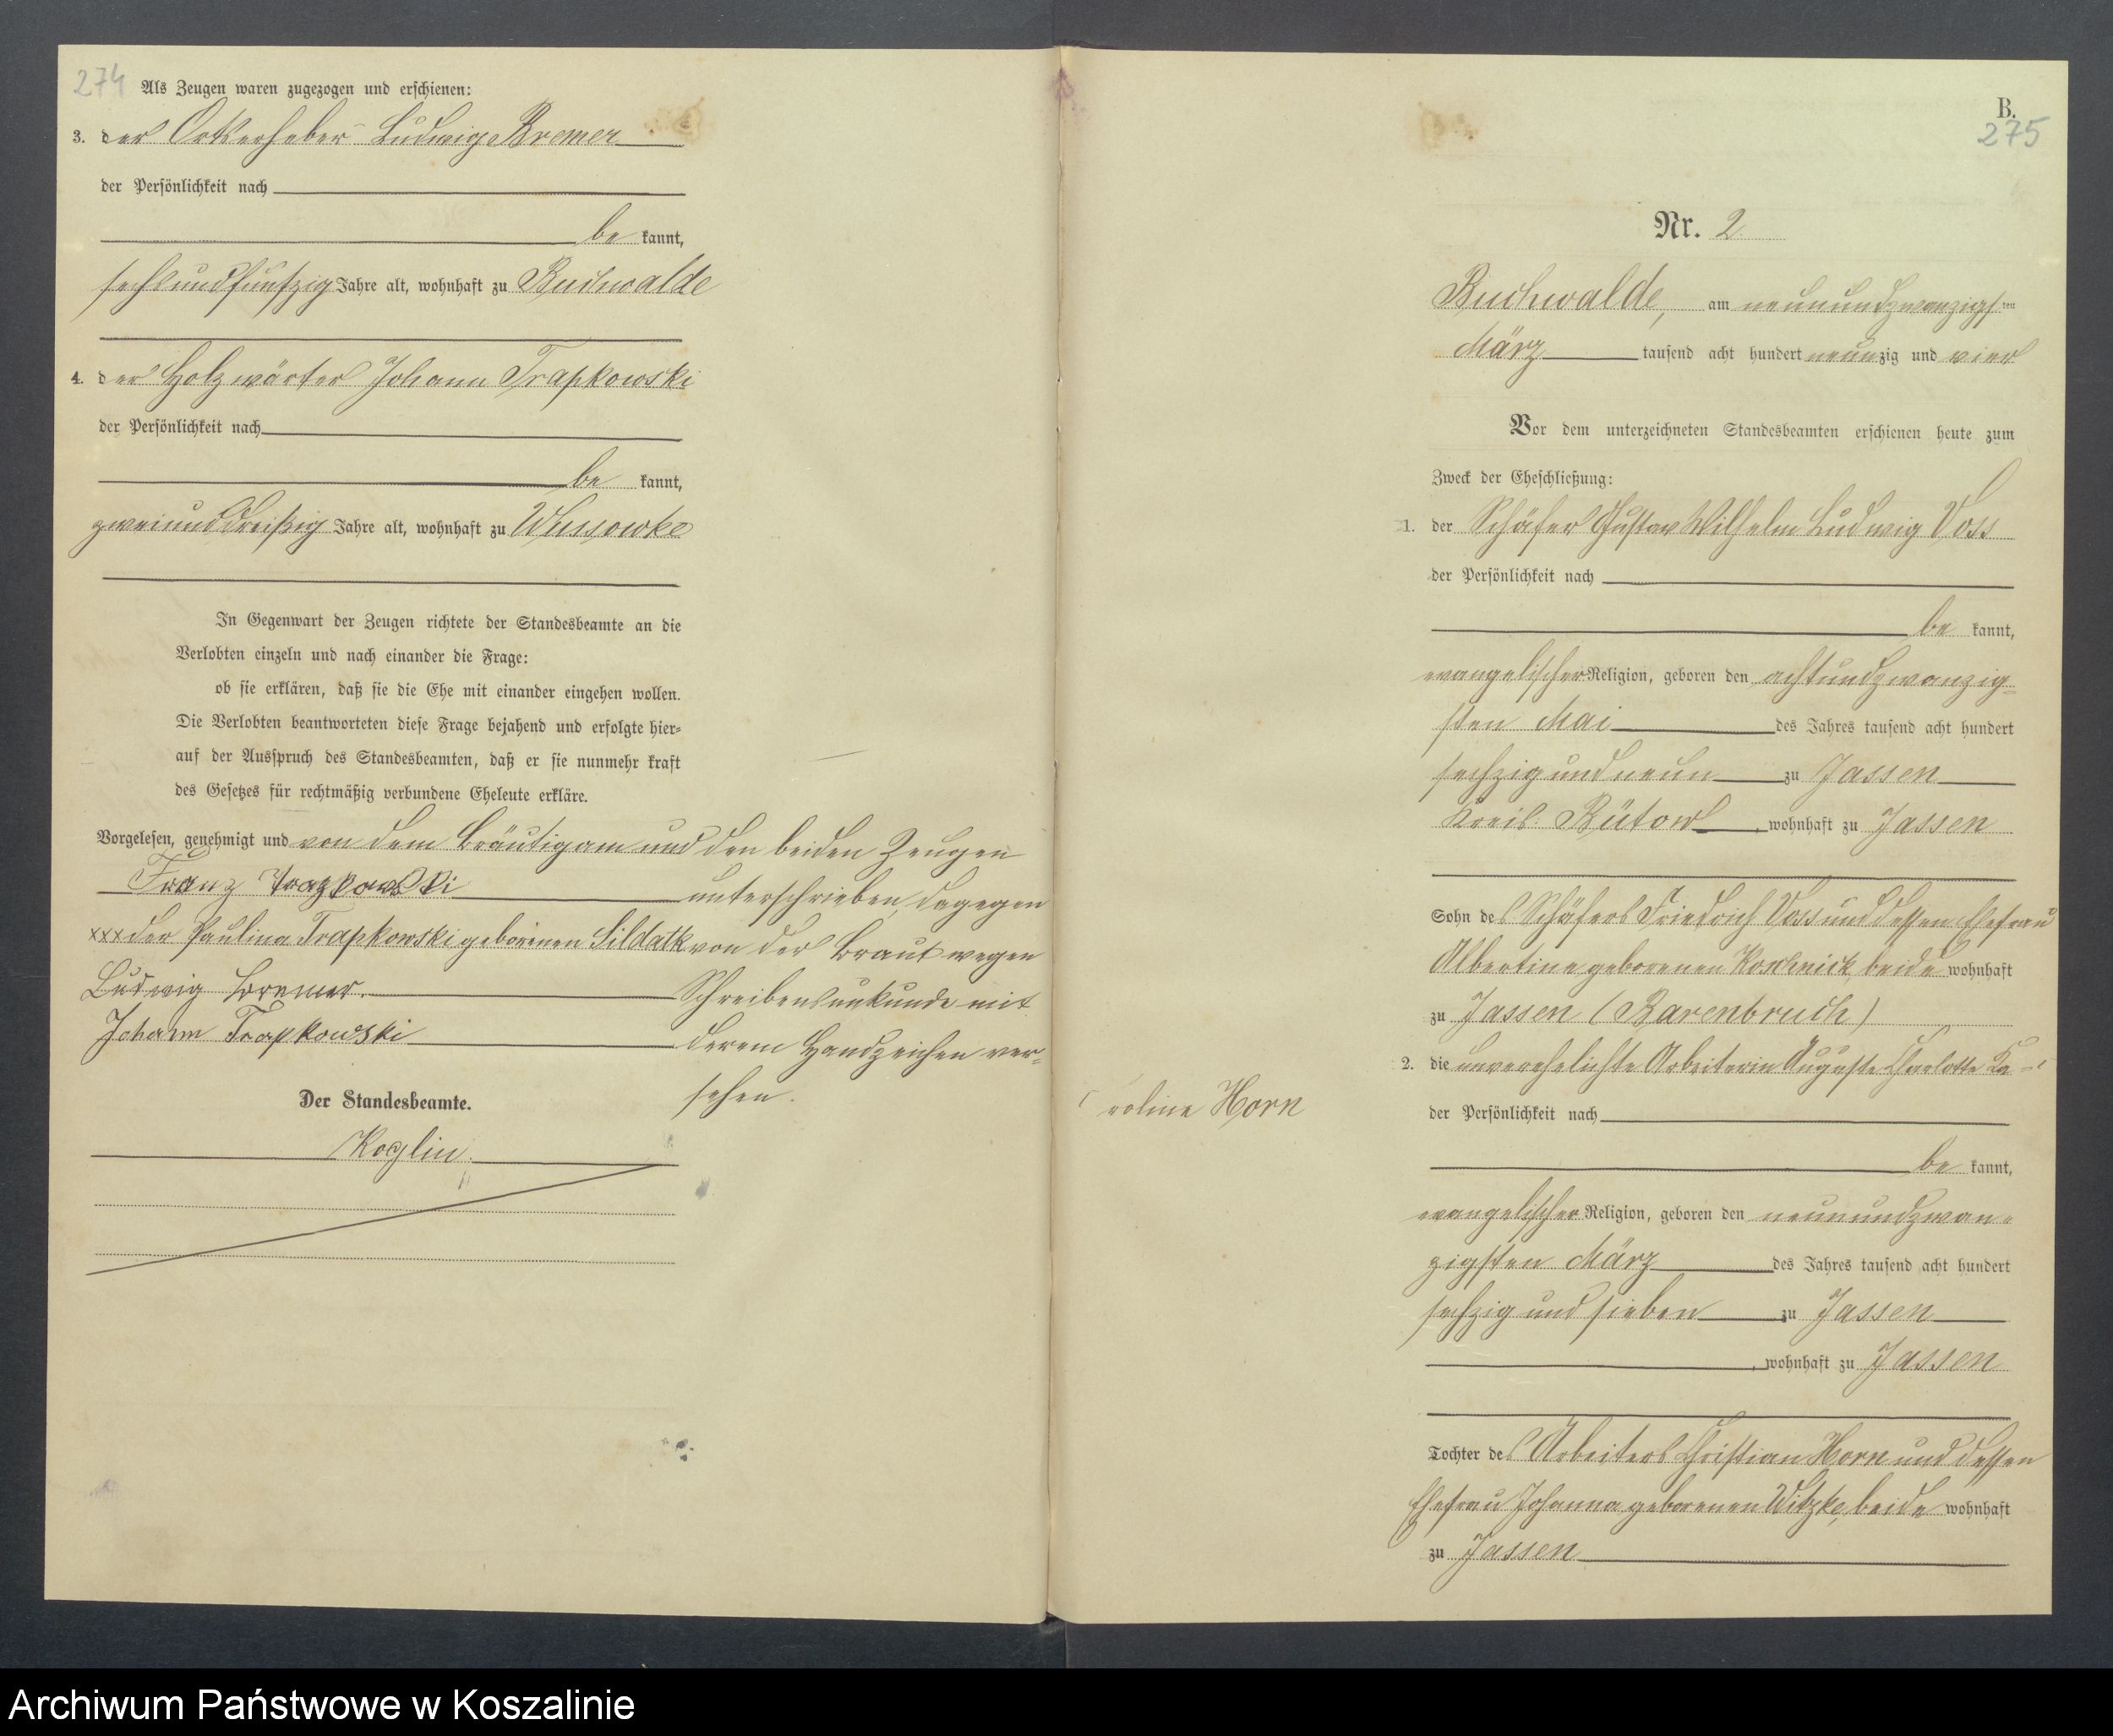 274
Als Zeugen waren zugezogen und erschienen:
3. der Ortserheber Ludwig Bremer
der Persönlichkeit nach
be kannt,
sechsundfünfzig Jahre alt, wohnhaft zu Buchwalde
4. der Holzwärter Johann Trapkowski
der Persönlichkeit nach
be kannt,
zweiunddreißig Jahre alt, wohnhaft zu Wussowke
In Gegenwart der Zeugen richtete der Standesbeamte an die
Verlobten einzeln und nach einander die Frage:
ob sie erklären, daß sie die Ehe mit einander eingehen wollen.
Die Verlobten beantworteten diese Frage bejahend und erfolgte hier-
auf der Ausspruch des Standesbeamten, daß er sie nunmehr kraft
des Gesetzes für rechtmäßig verbundene Eheleute erkläre.
Vorgelesen, genehmigt und von dem Bräutigam und den beiden Zeugen
Franz Trapkowski unterschrieben, dagegen
xxx der Paulina Trapkowski geborenen Sildatk von der Braut wegen
Ludwig Bremer. Schreibensunkunde mit
Johann Trapkowski derem Handzeichen ver-
sehen.
Der Standesbeamte.
Koglin.
B.
275
Nr. 2
Buchwalde, am neunundzwanzigsten
März tausend acht hundert neunzig und vier
Vor dem unterzeichneten Standesbeamten erschienen heute zum
Zweck der Eheschließung:
1. der Schäfer Gustav Wilhelm Ludwig Voss
der Persönlichkeit nach
be kannt,
evangelischer Religion, geboren den achtundzwanzig-
sten Mai des Jahres tausend acht hundert
sechzig und neun zu Jassen
Kreis Bütow, wohnhaft zu Jassen
Sohn des Schäfers Friedrich Voss und dessen Ehefrau
Albertine geborenen Koschnick, beide wohnhaft
zu Jassen (Barenbruch)
2. die unverehelichte Arbeiterin Auguste Charlotte Ka-
roline Horn
der Persönlichkeit nach
be kannt,
evangelischer Religion, geboren den neunundzwan-
zigsten März des Jahres tausend acht hundert
sechzig und sieben zu Jassen
, wohnhaft zu Jassen
Tochter des Arbeiters Christian Horn und dessen
Ehefrau Johanna geborenen Witzke, beide wohnhaft
zu Jassen
Archiwum Państwowe w Koszalinie